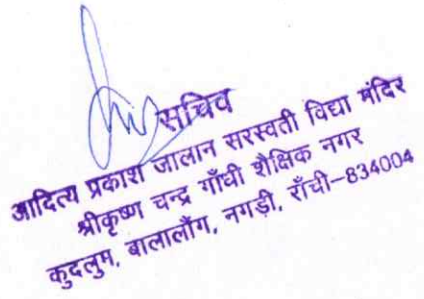 सचिव
आदित्य प्रकाश जालान सरस्वती विद्या मंदिर
श्रीकृष्ण चन्द्र गाँधी शैक्षिक नगर
कुदलुम, बालालौंग, नगड़ी, राँची-834004